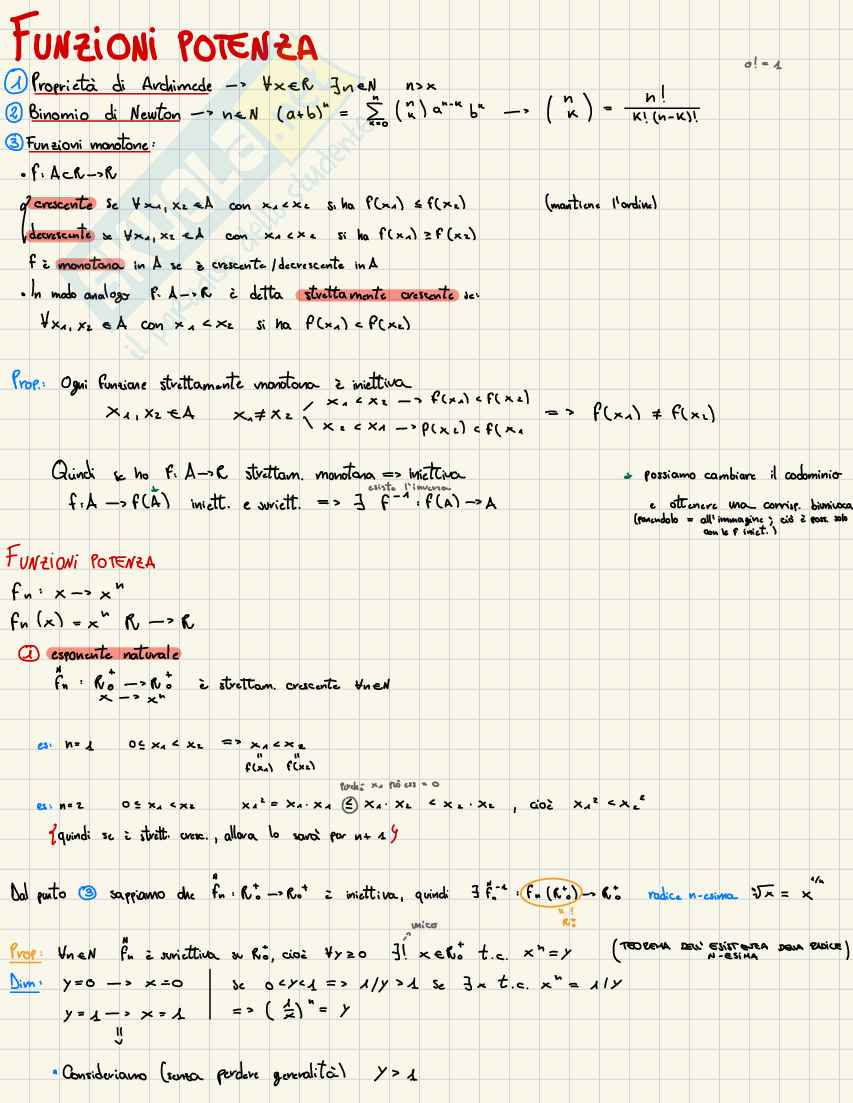 FUNZIONI POTENZA
0! = 1
① Proprietà di Archimede –> ∀x∈R ∃n∈N n>x
② Binomio di Newton –> n∈N (a+b)ⁿ = ∑ₖ₌₀ⁿ (n k) aⁿ⁻ᵏ bᵏ –> (n k) = n! / K!(n-K)!
③ Funzioni monotone:
• f: A⊂R–>R
crescente se ∀x₁,x₂∈A con x₁<x₂ si ha f(x₁) ≤ f(x₂) (mantiene l'ordine)
decrescente se ∀x₁,x₂∈A con x₁<x₂ si ha f(x₁) ≥ f(x₂)
f è monotona in A se è crescente/decrescente in A
• In modo analogo f: A–>R è detta strettamente crescente se:
∀x₁,x₂∈A con x₁<x₂ si ha f(x₁) < f(x₂)
SKUOLA.net
il paradiso dello studente
Prop.: Ogni funzione strettamente monotona è iniettiva
x₁<x₂ –> f(x₁)<f(x₂)
x₁,x₂∈A x₁≠x₂ => f(x₁) ≠ f(x₂)
x₂<x₁ –> f(x₂)<f(x₁
Quindi se ho f: A–>R strettam. monotona => iniettiva
esiste l'inversa
f: A –> f(A) iniett. e suriett. => ∃ f⁻¹: f(A)–>A
* possiamo cambiare il codominio
e ottenere una corrisp. biunivoca
(ponendolo = all'immagine; ciò è poss. solo
con le f iniet.)
FUNZIONI POTENZA
fn: x –> xⁿ
fn(x) = xⁿ R –> R
① esponente naturale
f̃n: R₀⁺ –> R₀⁺ è strettam. crescente ∀n∈N
x –> xⁿ
es: n=1 0≤x₁<x₂ => x₁<x₂
f(x₁) f(x₂)
perché x₁ può ess = 0
es: n=2 0≤x₁<x₂ x₁² = x₁·x₁ ≤ x₁·x₂ < x₂·x₂, cioè x₁²<x₂²
{quindi se è strett. cresc., allora lo sarà per n+1}
Dal punto ③ sappiamo che f̃n: R₀⁺–>R₀⁺ è iniettiva, quindi ∃ f̃n⁻¹: fn(R₀⁺)–>R₀⁺ radice n-esima ⁿ√x = x^1/n
"!
R₀⁺
unico
Prop: ∀n∈N f̃n è suriettiva su R₀⁺, cioè ∀y≥0 ∃! x∈R₀⁺ t.c. xⁿ=y (TEOREMA DELL'ESISTENZA DELLA RADICE)
N-ESIMA
Dim: y=0 –> x=0 | se 0<y<1 => 1/y>1 se ∃x t.c. xⁿ = 1/y
y=1 –> x=1 | => (1/x)ⁿ = y
• Consideriamo (senza perdere generalità) y>1